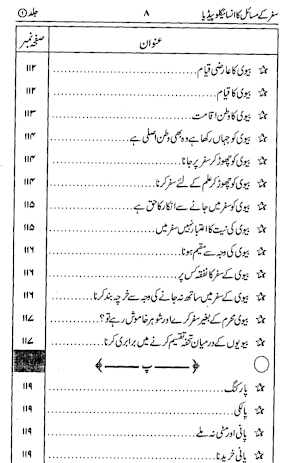 سفر کے مسائل کا انسائیکلوپیڈیا ۸ جلد ①
عنوان صفحہ نمبر
☆ بیوی کا عارضی قیام ........ ۱۱۲
☆ بیوی کا قیام ........ ۱۱۲
☆ بیوی کا وطن اقامت ........ ۱۱۳
☆ بیوی کو جہاں رکھا ہے وہ بھی وطن اصلی ہے ........ ۱۱۴
☆ بیوی کو چھوڑ کر سفر پر جانا ........ ۱۱۴
☆ بیوی کو چھوڑ کر علم کے لئے سفر کرنا ........ ۱۱۴
☆ بیوی کو سفر میں جانے سے انکار کا حق ہے ........ ۱۱۵
☆ بیوی کی نیت کا اعتبار نہیں سفر میں ........ ۱۱۵
☆ بیوی کی وجہ سے مقیم ہونا ........ ۱۱۶
☆ بیوی کے سفر کا نفقہ کس پر ........ ۱۱۶
☆ بیوی کے سفر میں ساتھ نہ جانے کی وجہ سے خرچہ بند کرنا ........ ۱۱۶
☆ بیوی محرم کے بغیر سفر کرے اور شوہر خاموش رہے تو؟ ........ ۱۱۷
☆ بیویوں کے درمیان تحفہ تقسیم کرنے میں برابری کرنا ........ ۱۱۷
پ
☆ پارکنگ ........ ۱۱۹
☆ پالکی ........ ۱۱۹
☆ پانی اور مٹی نہ ملے ........ ۱۱۹
☆ پانی خریدنا ........ ۱۱۹